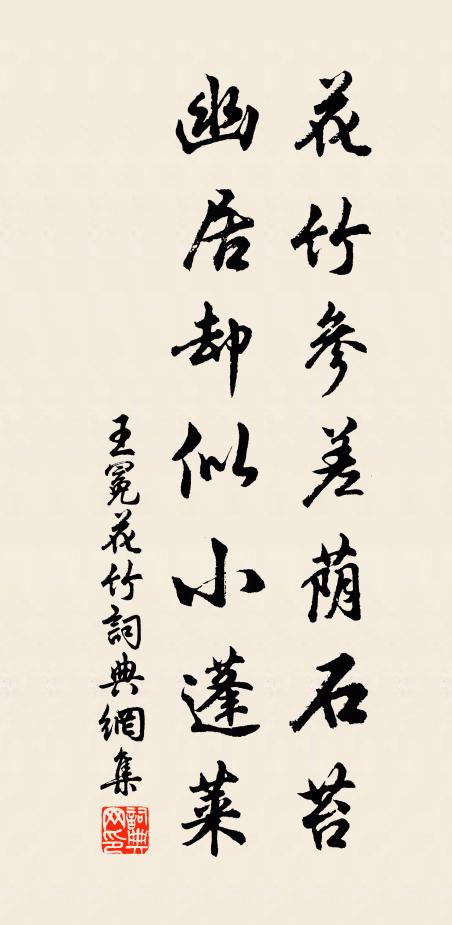 花竹參差荫石苔
幽居却似小蓬萊
王冕花竹詞典網集
詞典網印